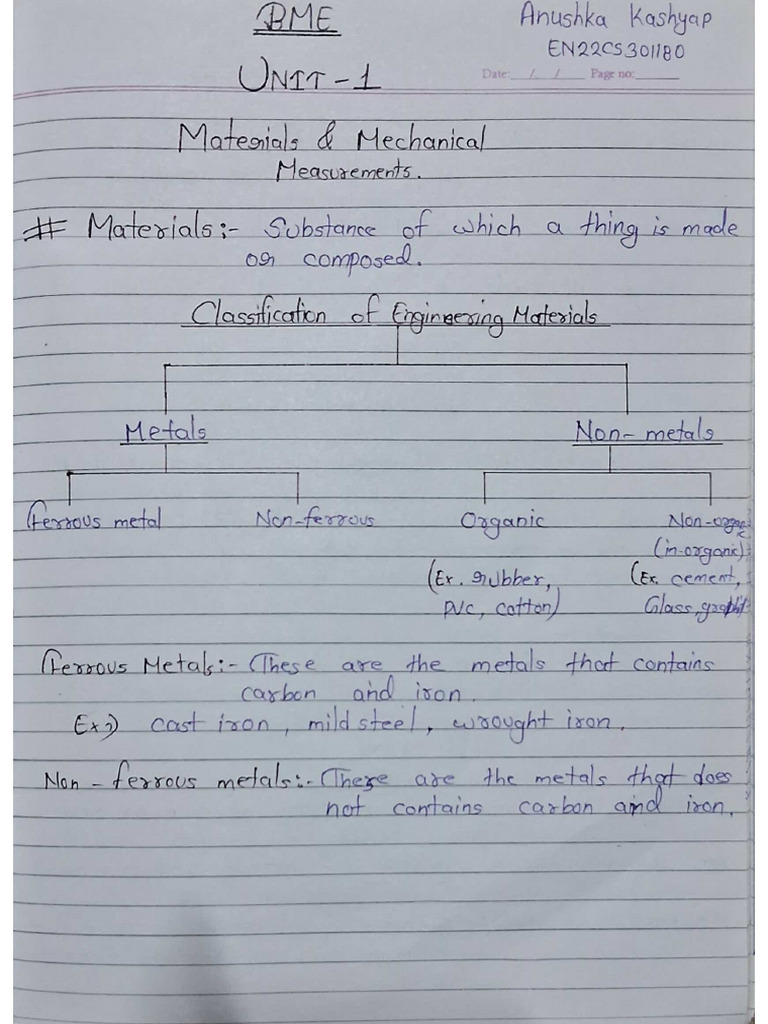 BME
Anushka Kashyap
EN22CS301180
UNIT-1
Date: / / Page no:
Materials & Mechanical
Measurements.
# Materials:- Substance of which a thing is made
or composed.
Classification of Engineering Materials
Metals Non-metals
Ferrous metal Non-ferrous Organic Non-organic
(in-organic)
(Ex. rubber, (Ex. cement,
PVC, cotton) Glass, graphit
Ferrous Metals:- These are the metals that contains
carbon and iron.
Ex:) cast iron, mild steel, wrought iron.
Non-ferrous metals:- These are the metals that does
not contains carbon and iron.